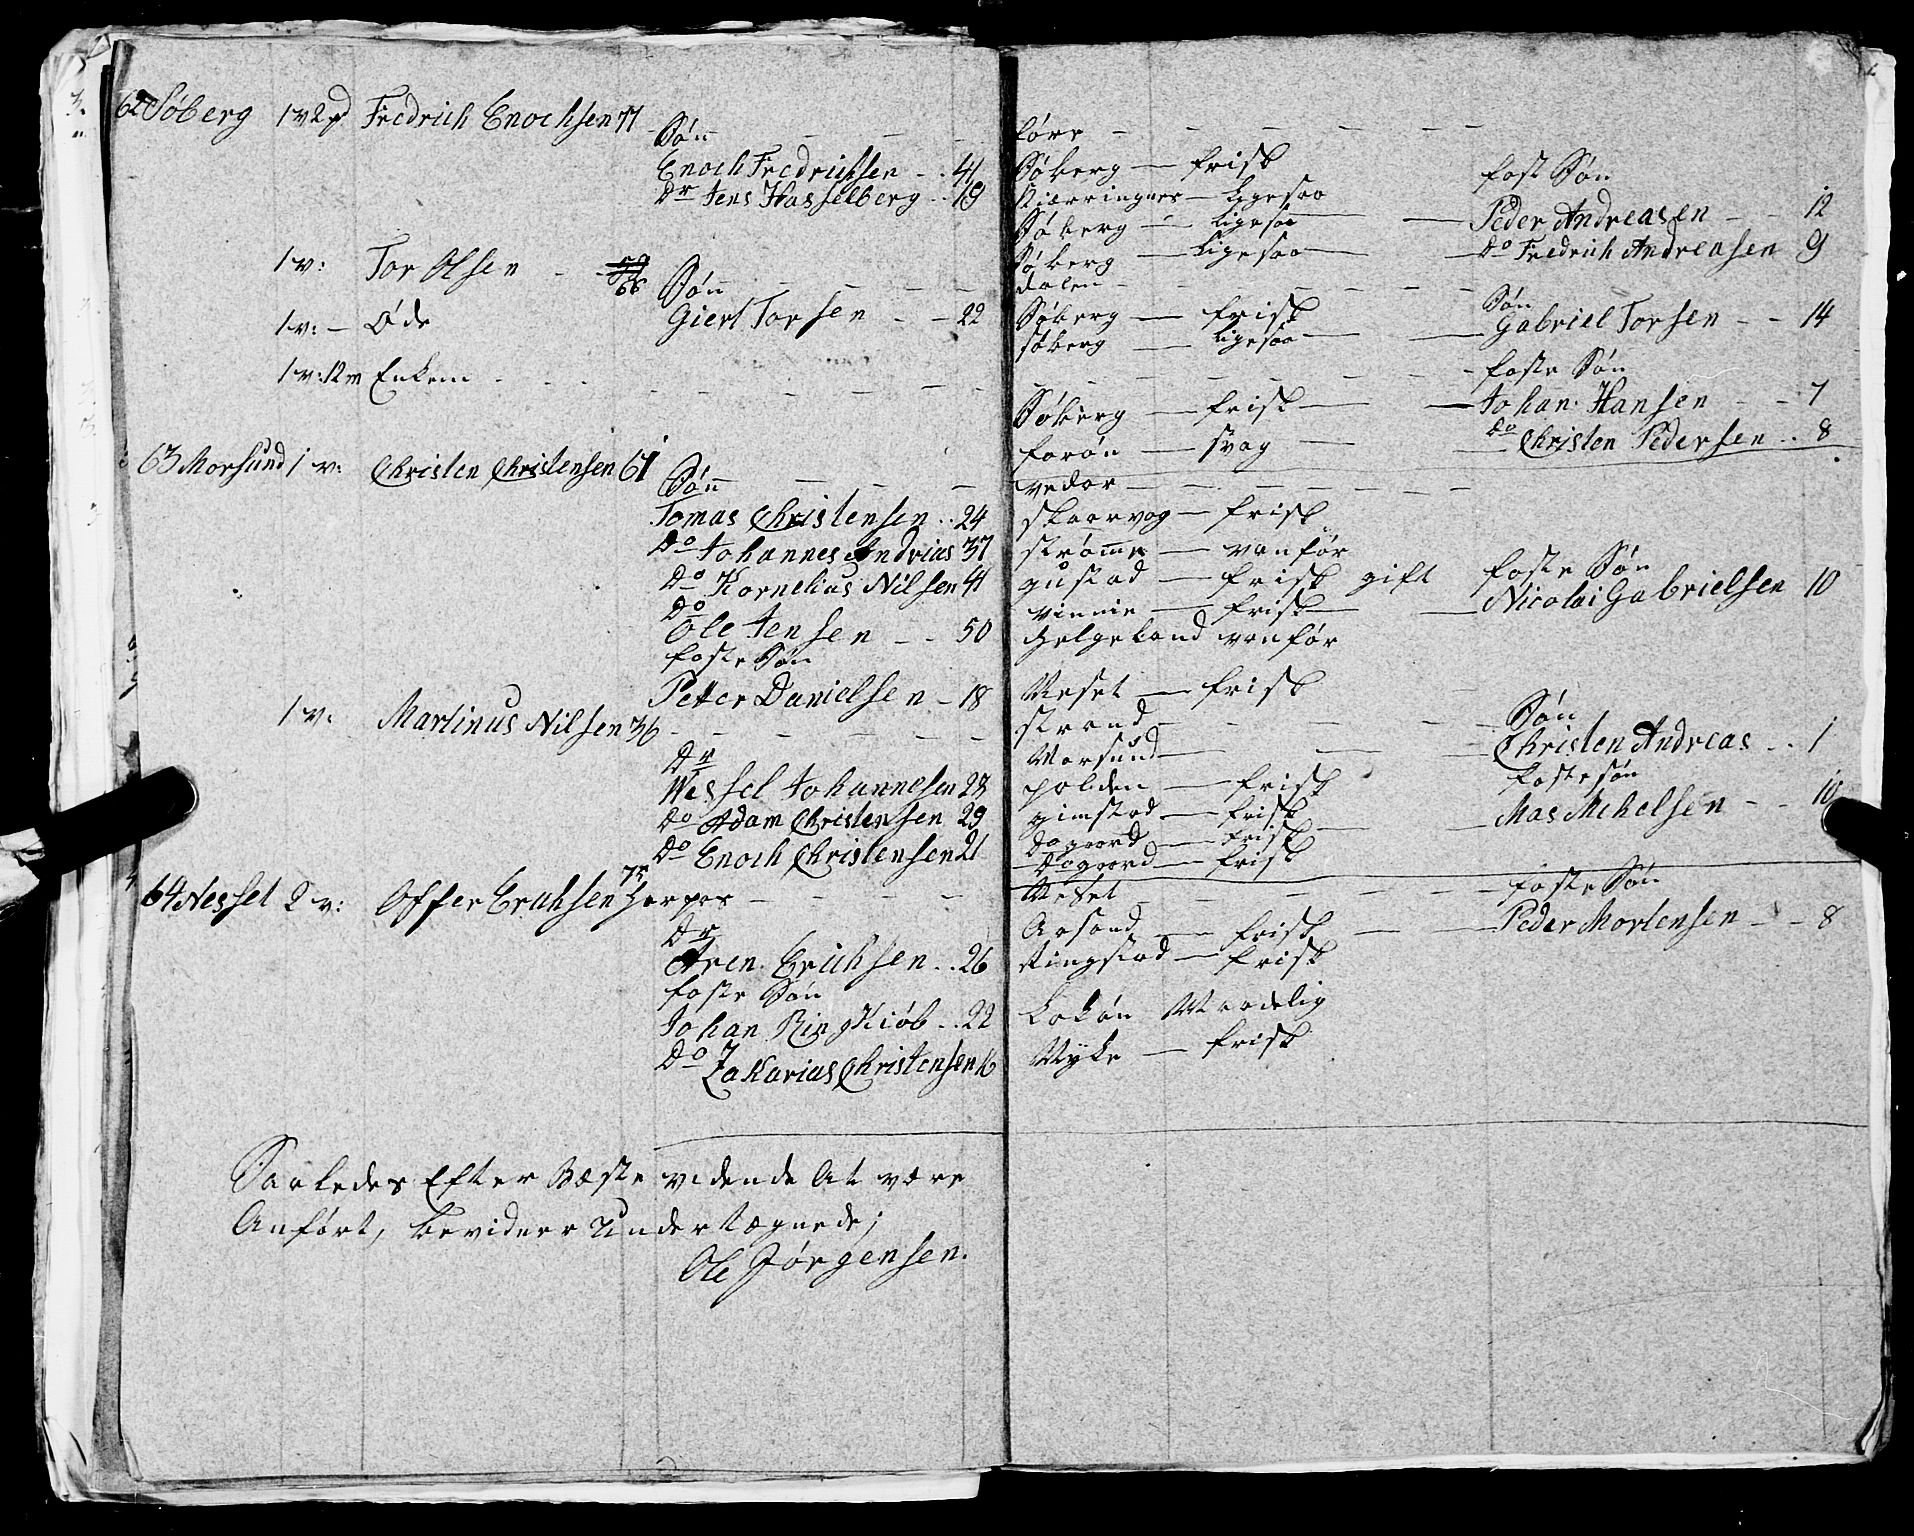 62 Søberg 1 v 2 p Fredrich Enochsen 77
Søn
Enoch Fredrichsen 41
Dr Jens Hasselberg 19
1 v: Tor Olsen 66
Søn
1 v: Øde Giert Torsen 22
1 v: 12 m Enken
63 Morsund 1 v: Christen Christensen 61
Søn
Tomas Christensen 24
Do Johannes Andrias 37
Do Kornelius Nilsen 41
Do
Ole Jensen 50
foste Søn
Petter Danielsen 18
1 v: Martinus Nilsen 36
Dr
Wessel Johannesen 28
Do Adam Christensen 29
Do Enoch Christensen 21
64 Nesset 2 v: Offer Erichsen 75
Dr
Aren Erichsen 26
foste Søn
Johan Ring Kiøb 22
Do Zakarias Christensen 16
Saaledes Efter Bæste vidende At være
Anført, bevidner undertægnede;
Ole Jørgensen.
Søberg frisk
Kjærringnes Ligesaa
Søberg Ligesaa
Søberg Ligesaa
dalen
Søberg frisk
søberg ligesaa
Søberg frisk
forøn svag
vedar
skaarvog frisk
strømme vanfør
gustad frisk gift
vinnie frisk
Helgeland vanfør
Neset frisk
strand
Morsund
polden frisk
gimstad frisk
Dagaard frisk
Dagaard frisk
Neset
Aasand frisk
Ringstad frisk
Lokøn Maadelig
Nyke frisk
fost Søn
Peder Andreasen 12
do Fredrich Andreasen 9
Søn
Gabriel Torsen 14
foste Søn
Johan Hansen 7
do Christen Pedersen 8
foste Søn
Nicolai Gabrielsen 10
Søn
Christen Andreas 1
foste søn
Mas Mihelsen 10
foste Søn
Peder Mortensen 8